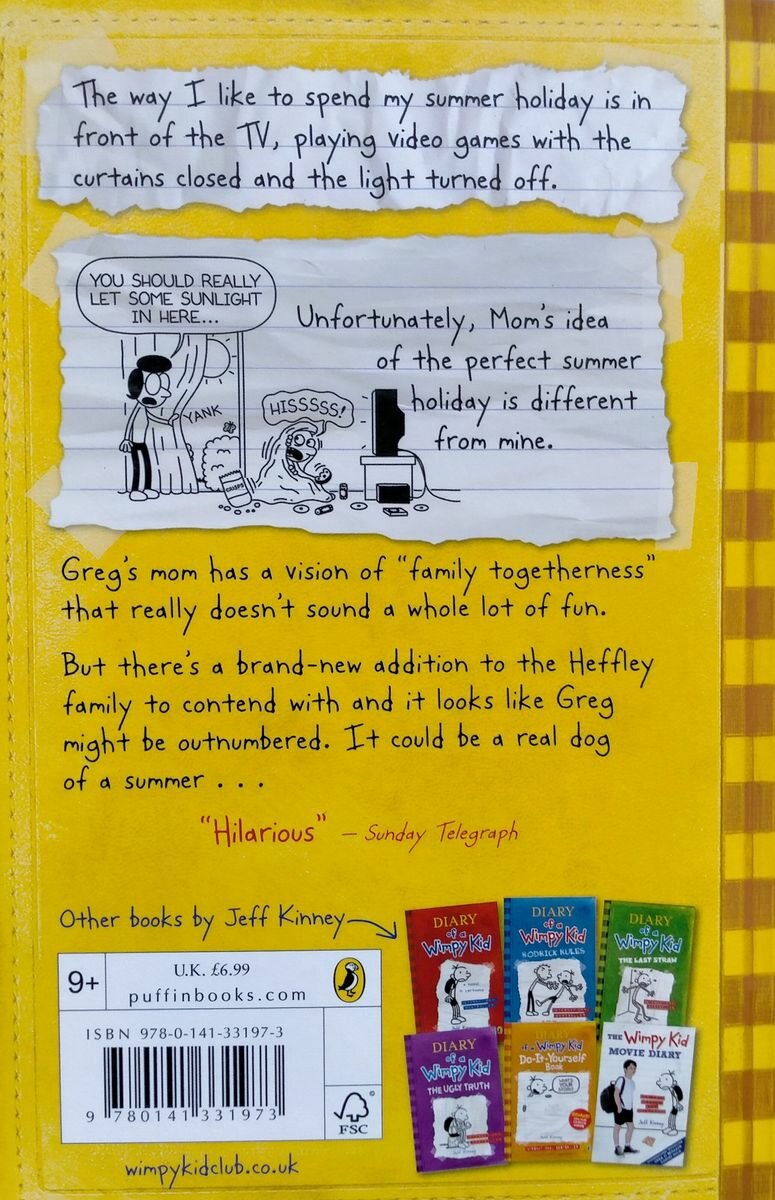 The way I like to spend my summer holiday is in
front of the TV, playing video games with the
curtains closed and the light turned off.
YOU SHOULD REALLY
LET SOME SUNLIGHT
IN HERE...
Unfortunately, Mom's idea
of the perfect summer
holiday is different
from mine.
YANK
HISSSSS!
CRISPS
Greg's mom has a vision of "family togetherness"
that really doesn't sound a whole lot of fun.
But there's a brand-new addition to the Heffley
family to contend with and it looks like Greg
might be outnumbered. It could be a real dog
of a summer . . .
"Hilarious" – Sunday Telegraph
Other books by Jeff Kinney
DIARY
of a
Wimpy Kid
DIARY
of a
Wimpy Kid
RODRICK RULES
DIARY
of a
Wimpy Kid
THE LAST STRAW
DIARY
of a
Wimpy Kid
THE UGLY TRUTH
of a Wimpy Kid
Do-It-Yourself
Book
Jeff Kinney
THE Wimpy Kid
MOVIE DIARY
Jeff Kinney
9+
U.K. £6.99
puffinbooks.com
ISBN 978-0-141-33197-3
9 780141 331973
FSC
wimpykidclub.co.uk